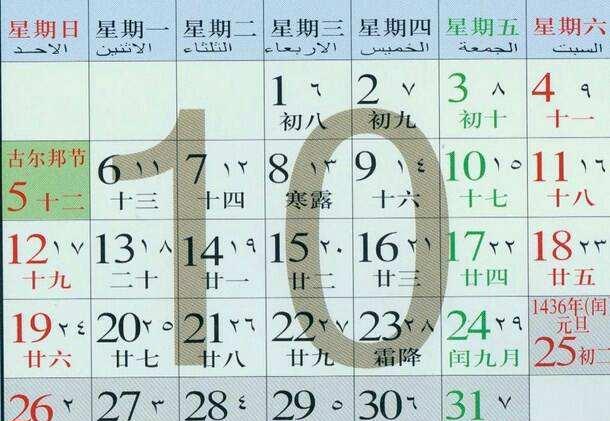 星期日 星期一 星期二 星期三 星期四 星期五 星期六
الاحد الاثنين الثلثاء الاربعاء الخميس الجمعة السبت
10
1 ٦ 2 ٧ 3 ٨ 4 ٩
初八 初九 初十 十一
古尔邦节
5 十二 6 ١١ 7 ١٢ 8 ١٣ 9 ١٤ 10 ١٥ 11 ١٦
十三 十四 寒露 十六 十七 十八
12 ١٧ 13 ١٨ 14 ١٩ 15 ٢٠ 16 ٢١ 17 ٢٢ 18 ٢٣
十九 二十 廿一 廿二 廿三 廿四 廿五
19 ٢٤ 20 ٢٥ 21 ٢٦ 22 ٢٧ 23 ٢٨ 24 ٢٩ 1436年(闰
元旦
廿六 廿七 廿八 廿九 霜降 闰九月 25 初
26 ٢ 27 ٣ 28 ٤ 29 ٥ 30 ٦ 31 ٧